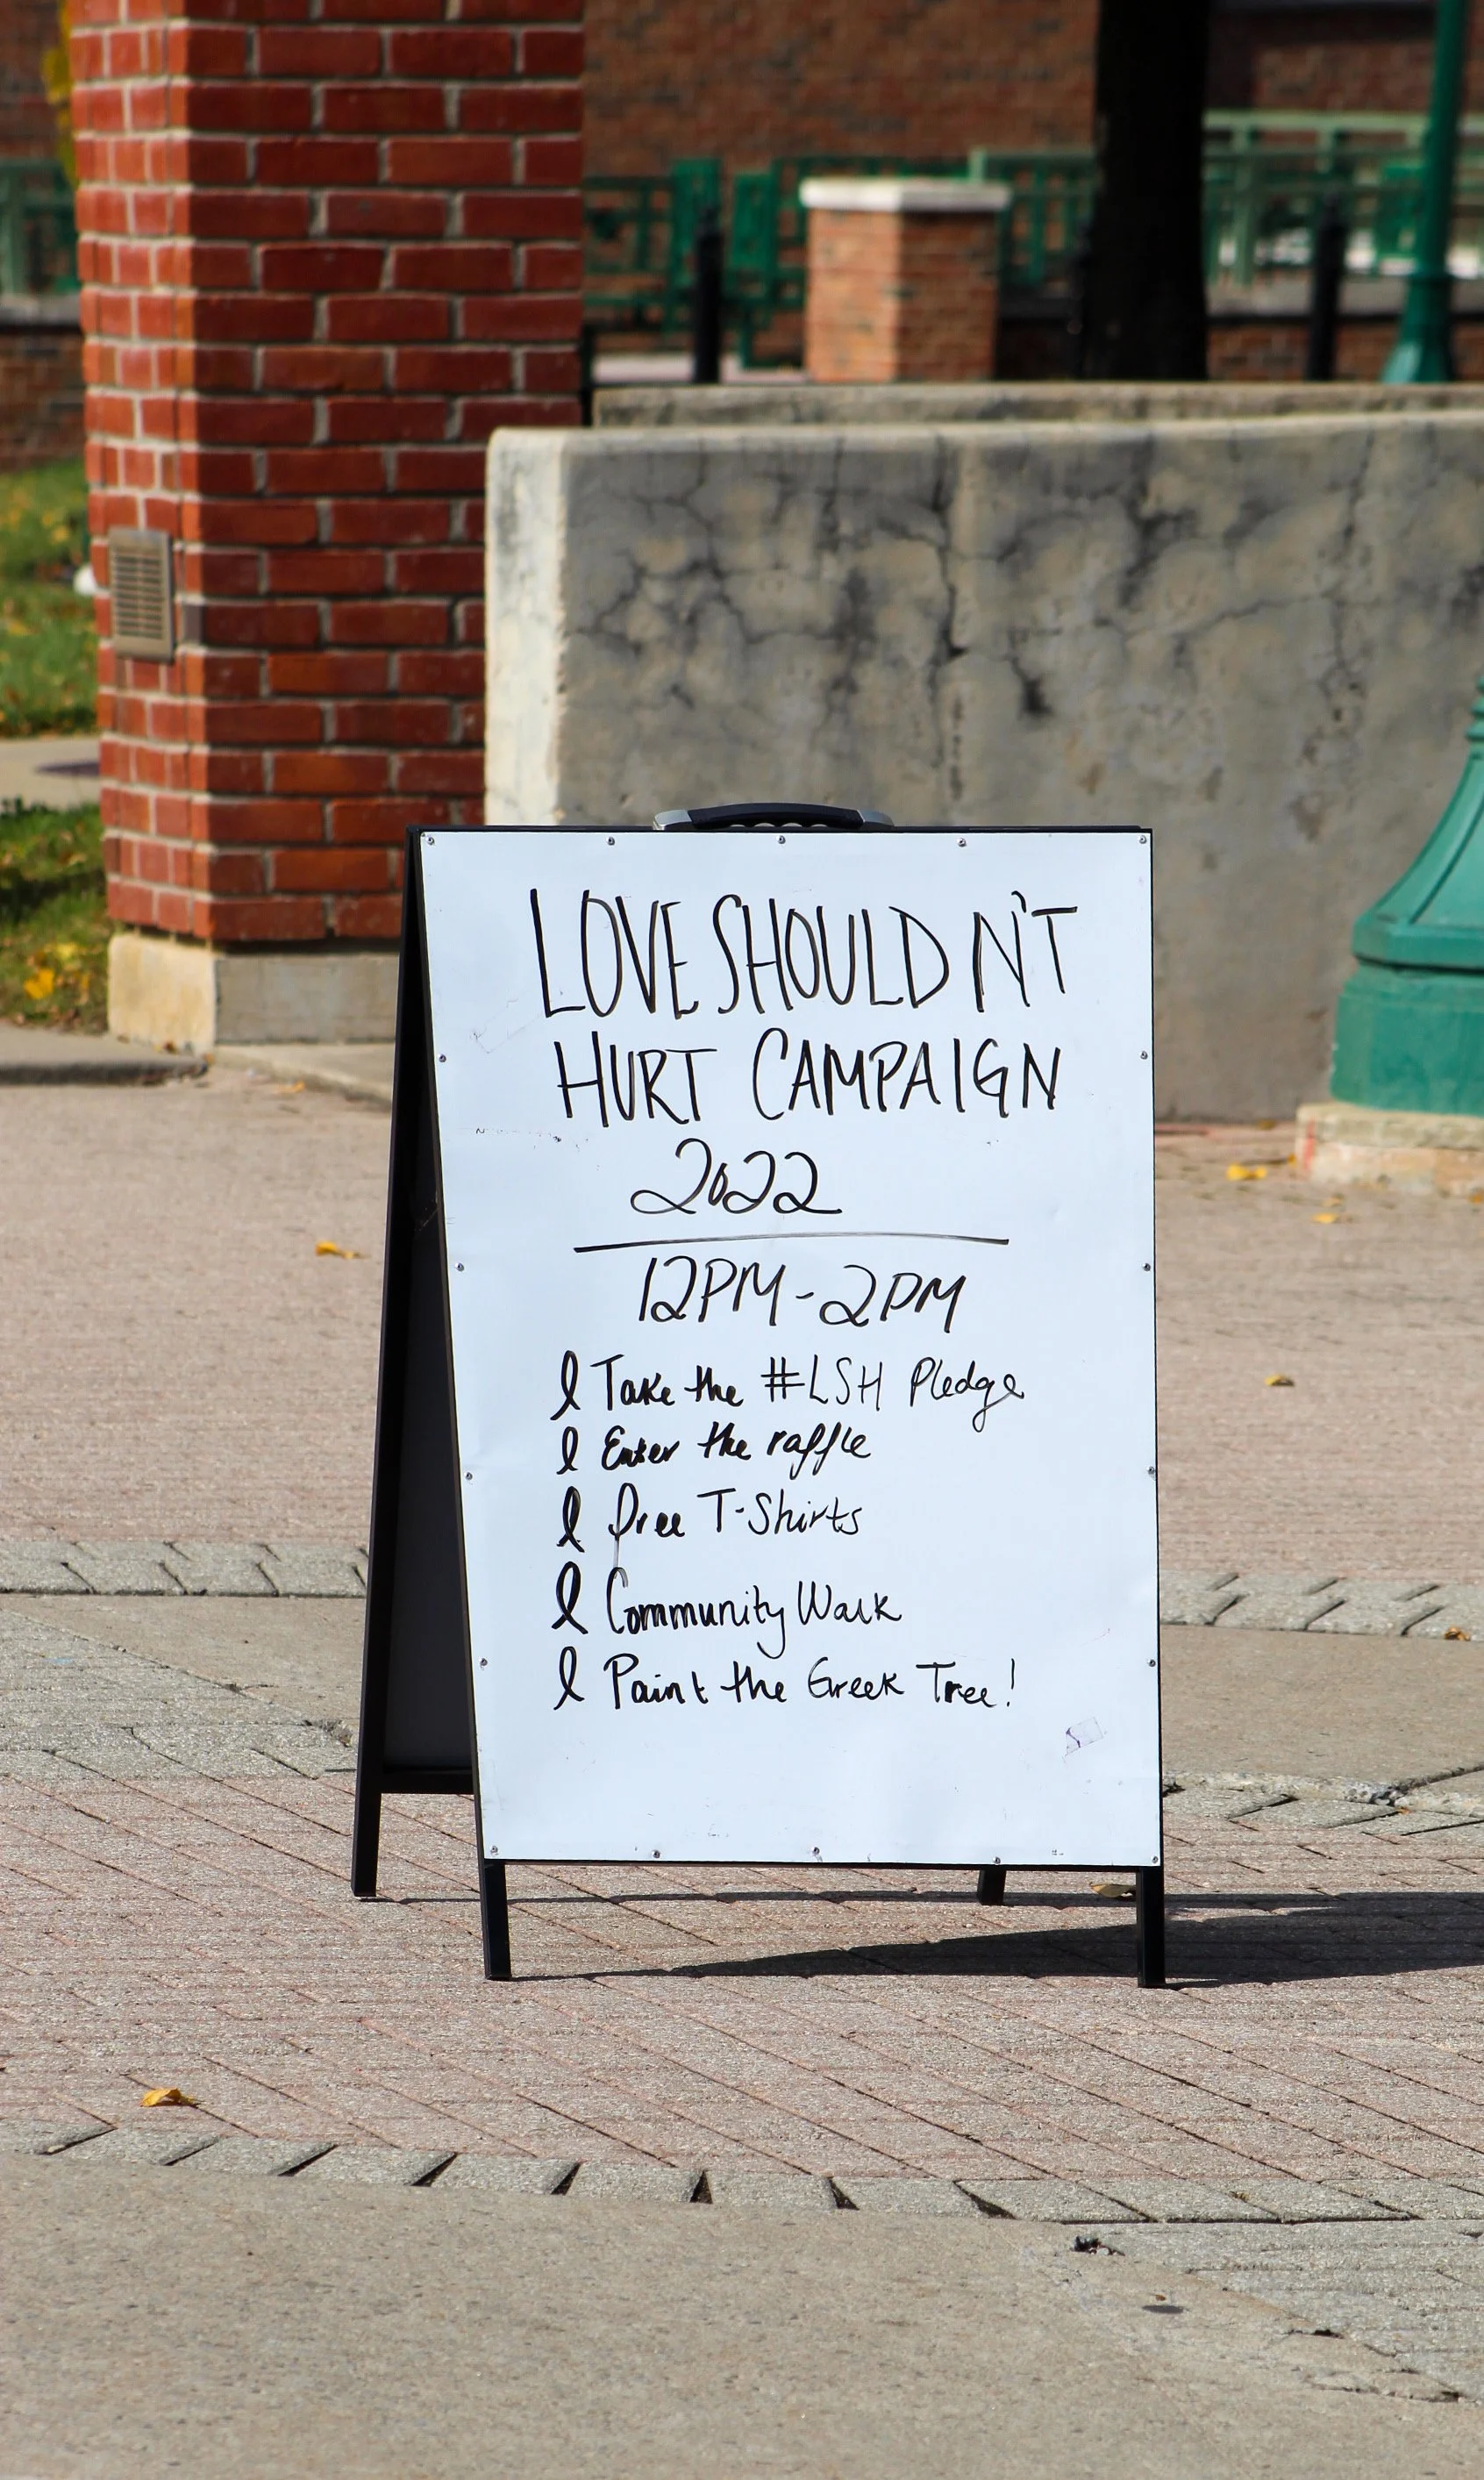 LOVE SHOULDN'T
HURT CAMPAIGN
2022
12PM-2PM
Take the #LSH Pledge
Enter the raffle
Free T-Shirts
Community Walk
Paint the Greek Tree!